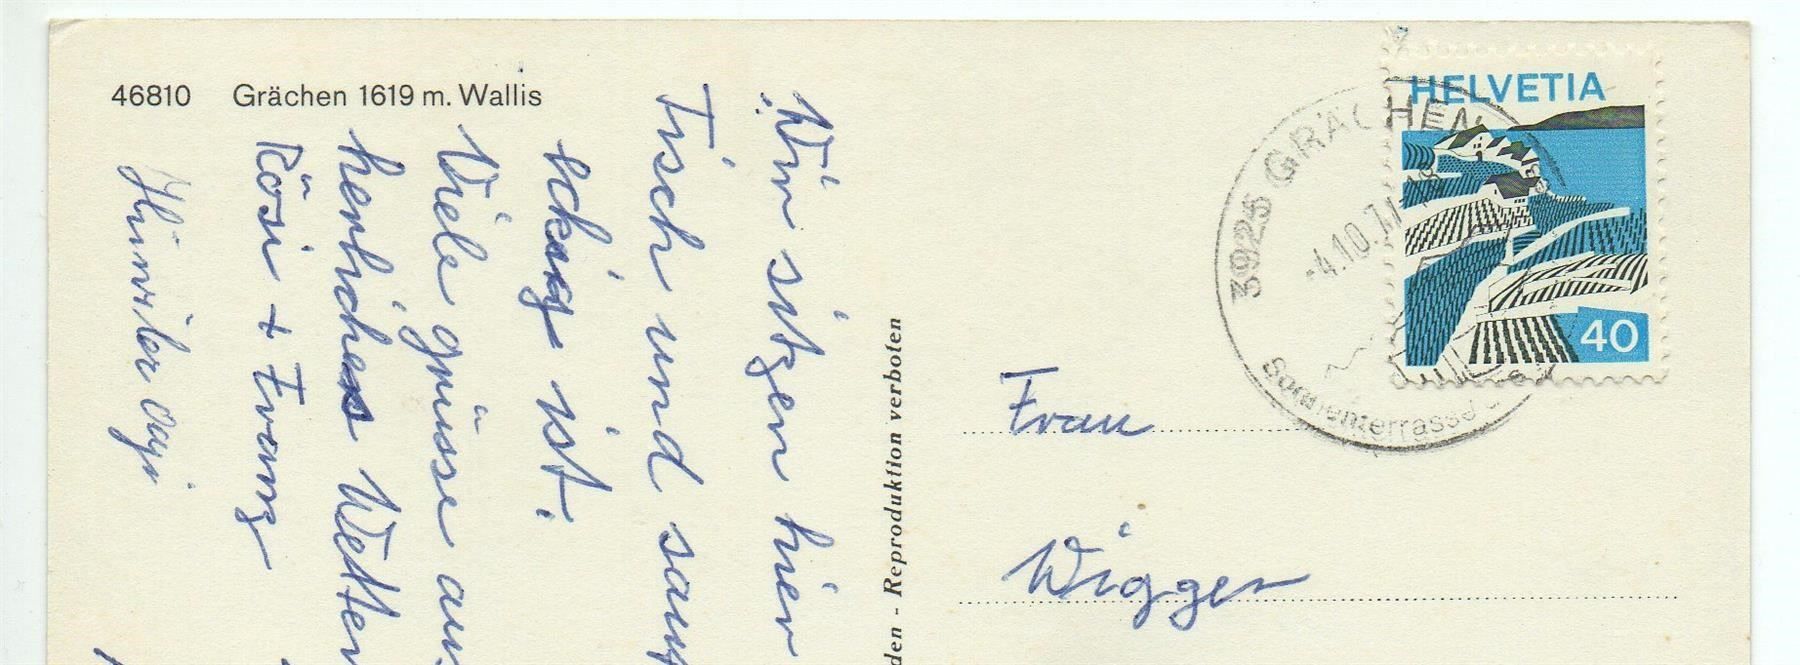 46810 Grächen 1619 m. Wallis
Wir sitzen hier
Tisch und sauf
ist!
Viele grüsse aus
herliches Wetter
Rösi + Franz
den - Reproduktion verboten
HELVETIA
40
3925 GRÄCHEN
-4.10.7
Sonnenterrasse
Frau
Wigger